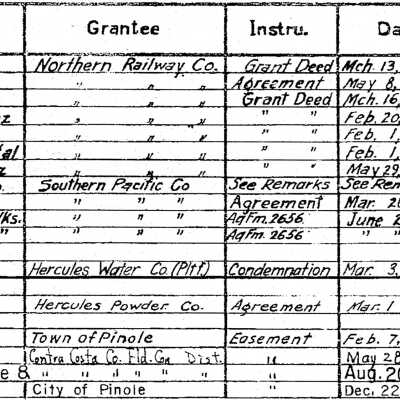 Grantee Instru. Da
Northern Railway Co. Grant Deed Mch. 13,
" " " Agreement May 8,
" " " Grant Deed Mch. 16,
z " " " " " Feb. 20
" " " " " Feb. 1,
al " " " " " Feb. 1,
" " " " " May 29,
Southern Pacific Co See Remarks See Rem
" " " Agreement Mar. 2
/Ks. " " " Ag Fm. 2656 June 2
" " " " Ag Fm. 2656 " "
Hercules Water Co. (Pltf.) Condemnation Mar. 3,
Hercules Powder Co. Agreement Mar. 1
Town of Pinole Easement Feb. 7,
Contra Costa Co. Fld. Con Dist. " May 28
e 8 " " " " " " " Aug. 20
City of Pinole " Dec. 22